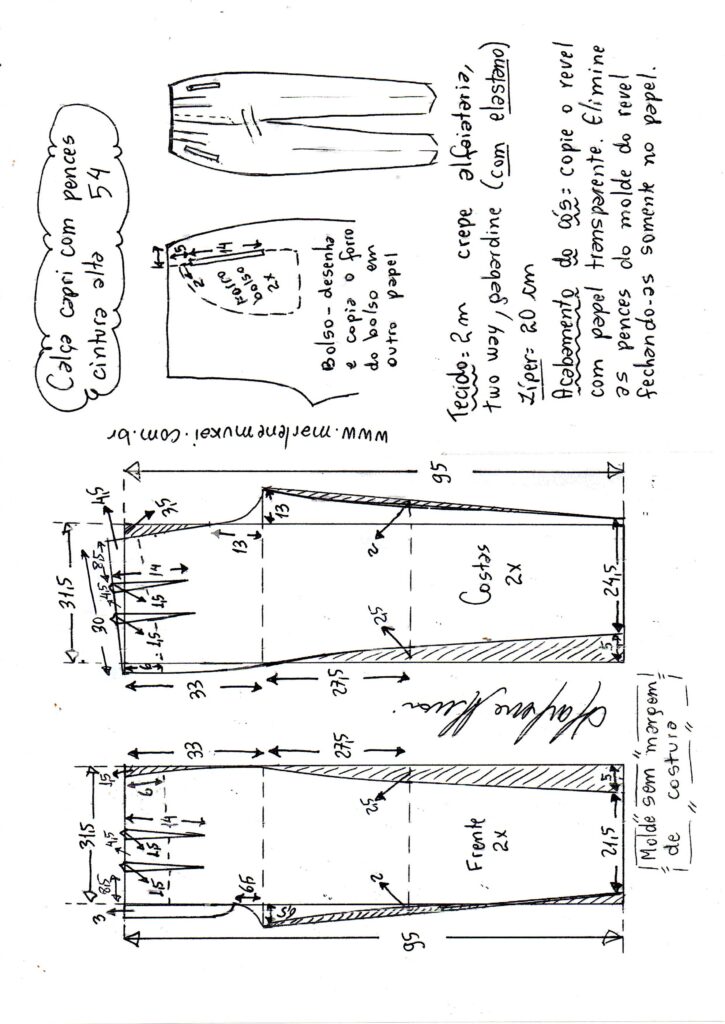 Calça capri com pences
cintura alta 54
1,5
14
2
2
Forro
bolso
2x
Bolso-desenha
e copia o forro
do bolso em
outro papel
Tecido=2m crepe alfaiataria,
two way, gabardine (com elastano)
Zíper=20cm
Acabamento do cós=copie o revel
com papel transparente. Elimine
as pences do molde do revel
fechando-as somente no papel.
www.marlenemukai.com.br
31,5
30
8,5
4,5
3,5
4,5
14
1,5
1,5
6
13
13
33
27,5
2
2,5
95
Costas
2x
24,5
5
Marlene Mukai
31,5
3
8,5
4,5
1,5
14
1,5
1,5
6
6,5
9,5
33
27,5
2
2,5
95
Frente
2x
21,5
5
Molde sem margem
de costura